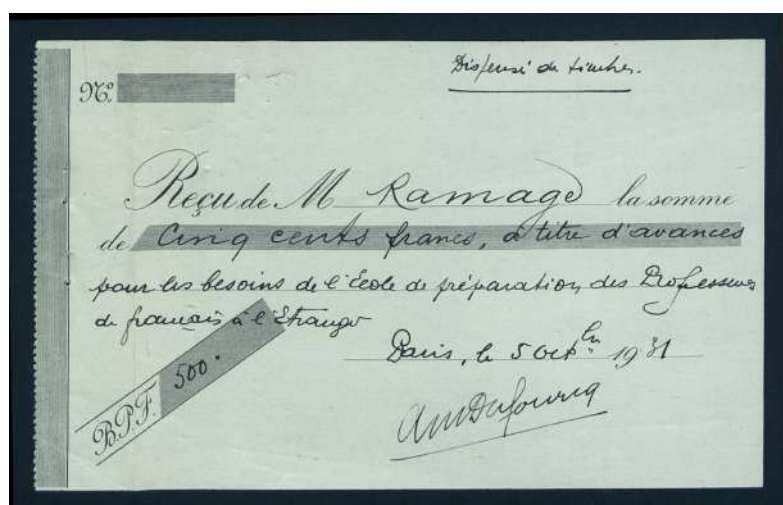 Dispensé de timbre.
Nº
Reçu de M Ramage la somme
de Cinq cents francs, à titre d'avances
pour les besoins de l'École de préparation des Professeurs
de français à l'Étranger
Paris, le 5 octbre 1931
B.P.F. 500.